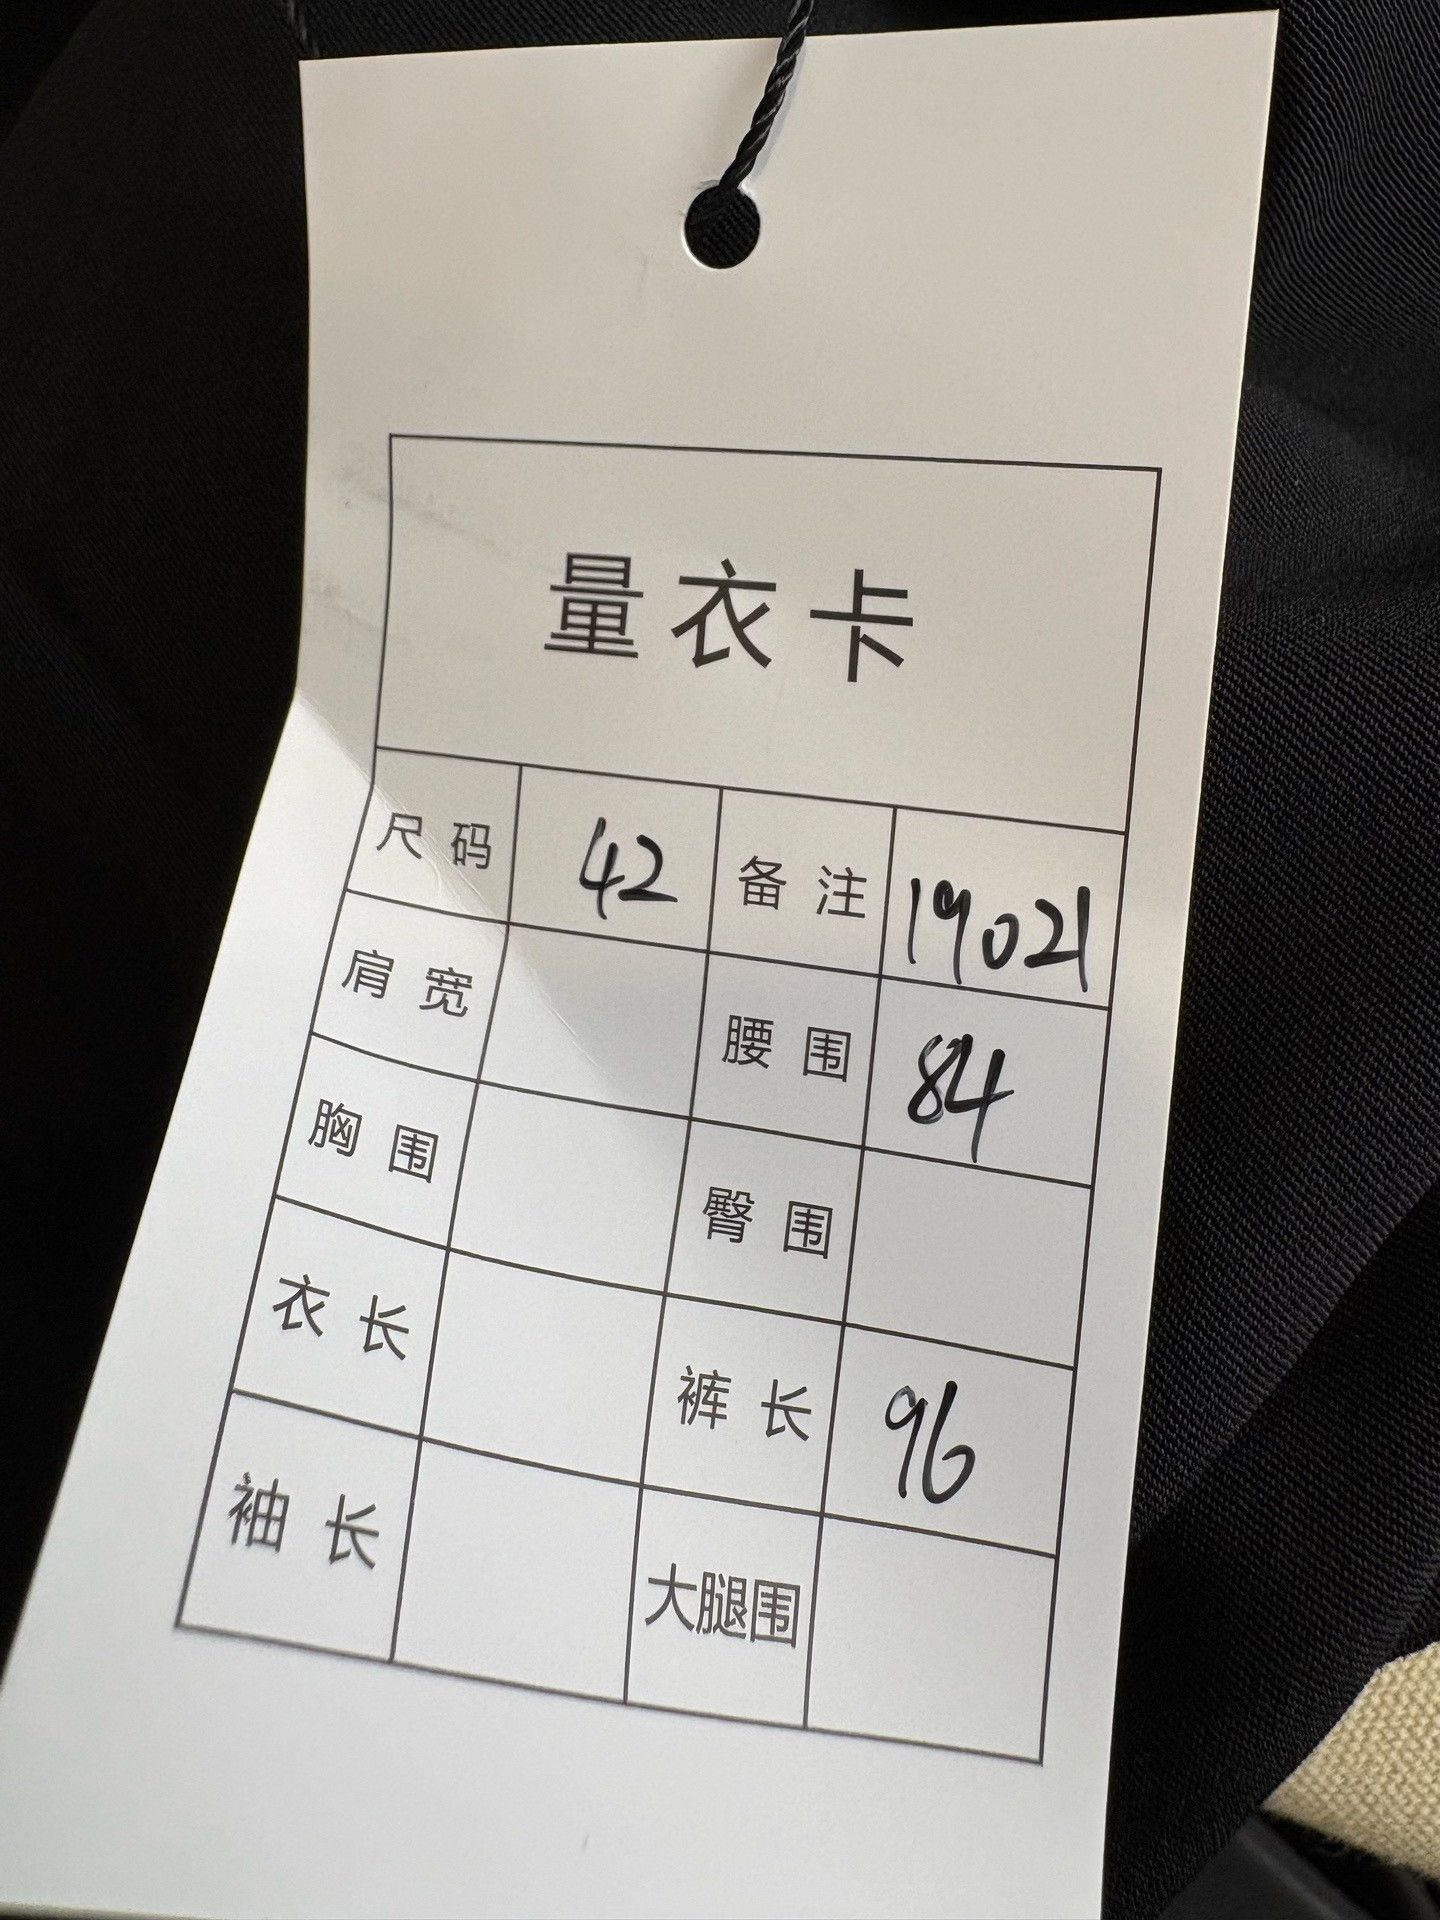 量衣卡
尺码 42 备注 19021
肩宽 腰围 84
胸围 臀围
衣长 裤长 96
袖长 大腿围